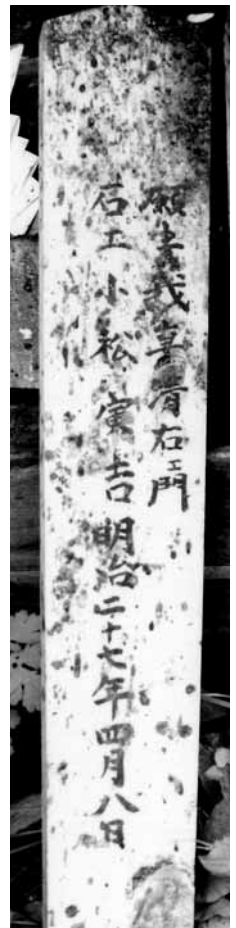 願主我妻清右エ門
石工小松寅吉明治二十七年四月八日